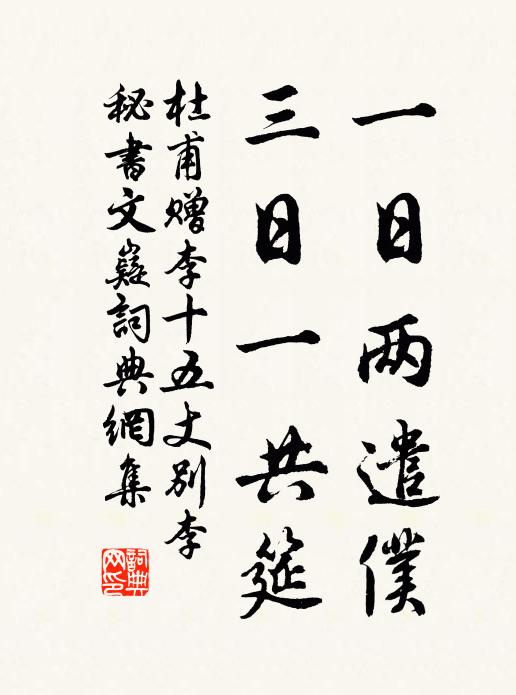 一日两遣僕
三日一共筵
杜甫赠李十五丈别李
秘書文嶷詞典網集
詞典網印